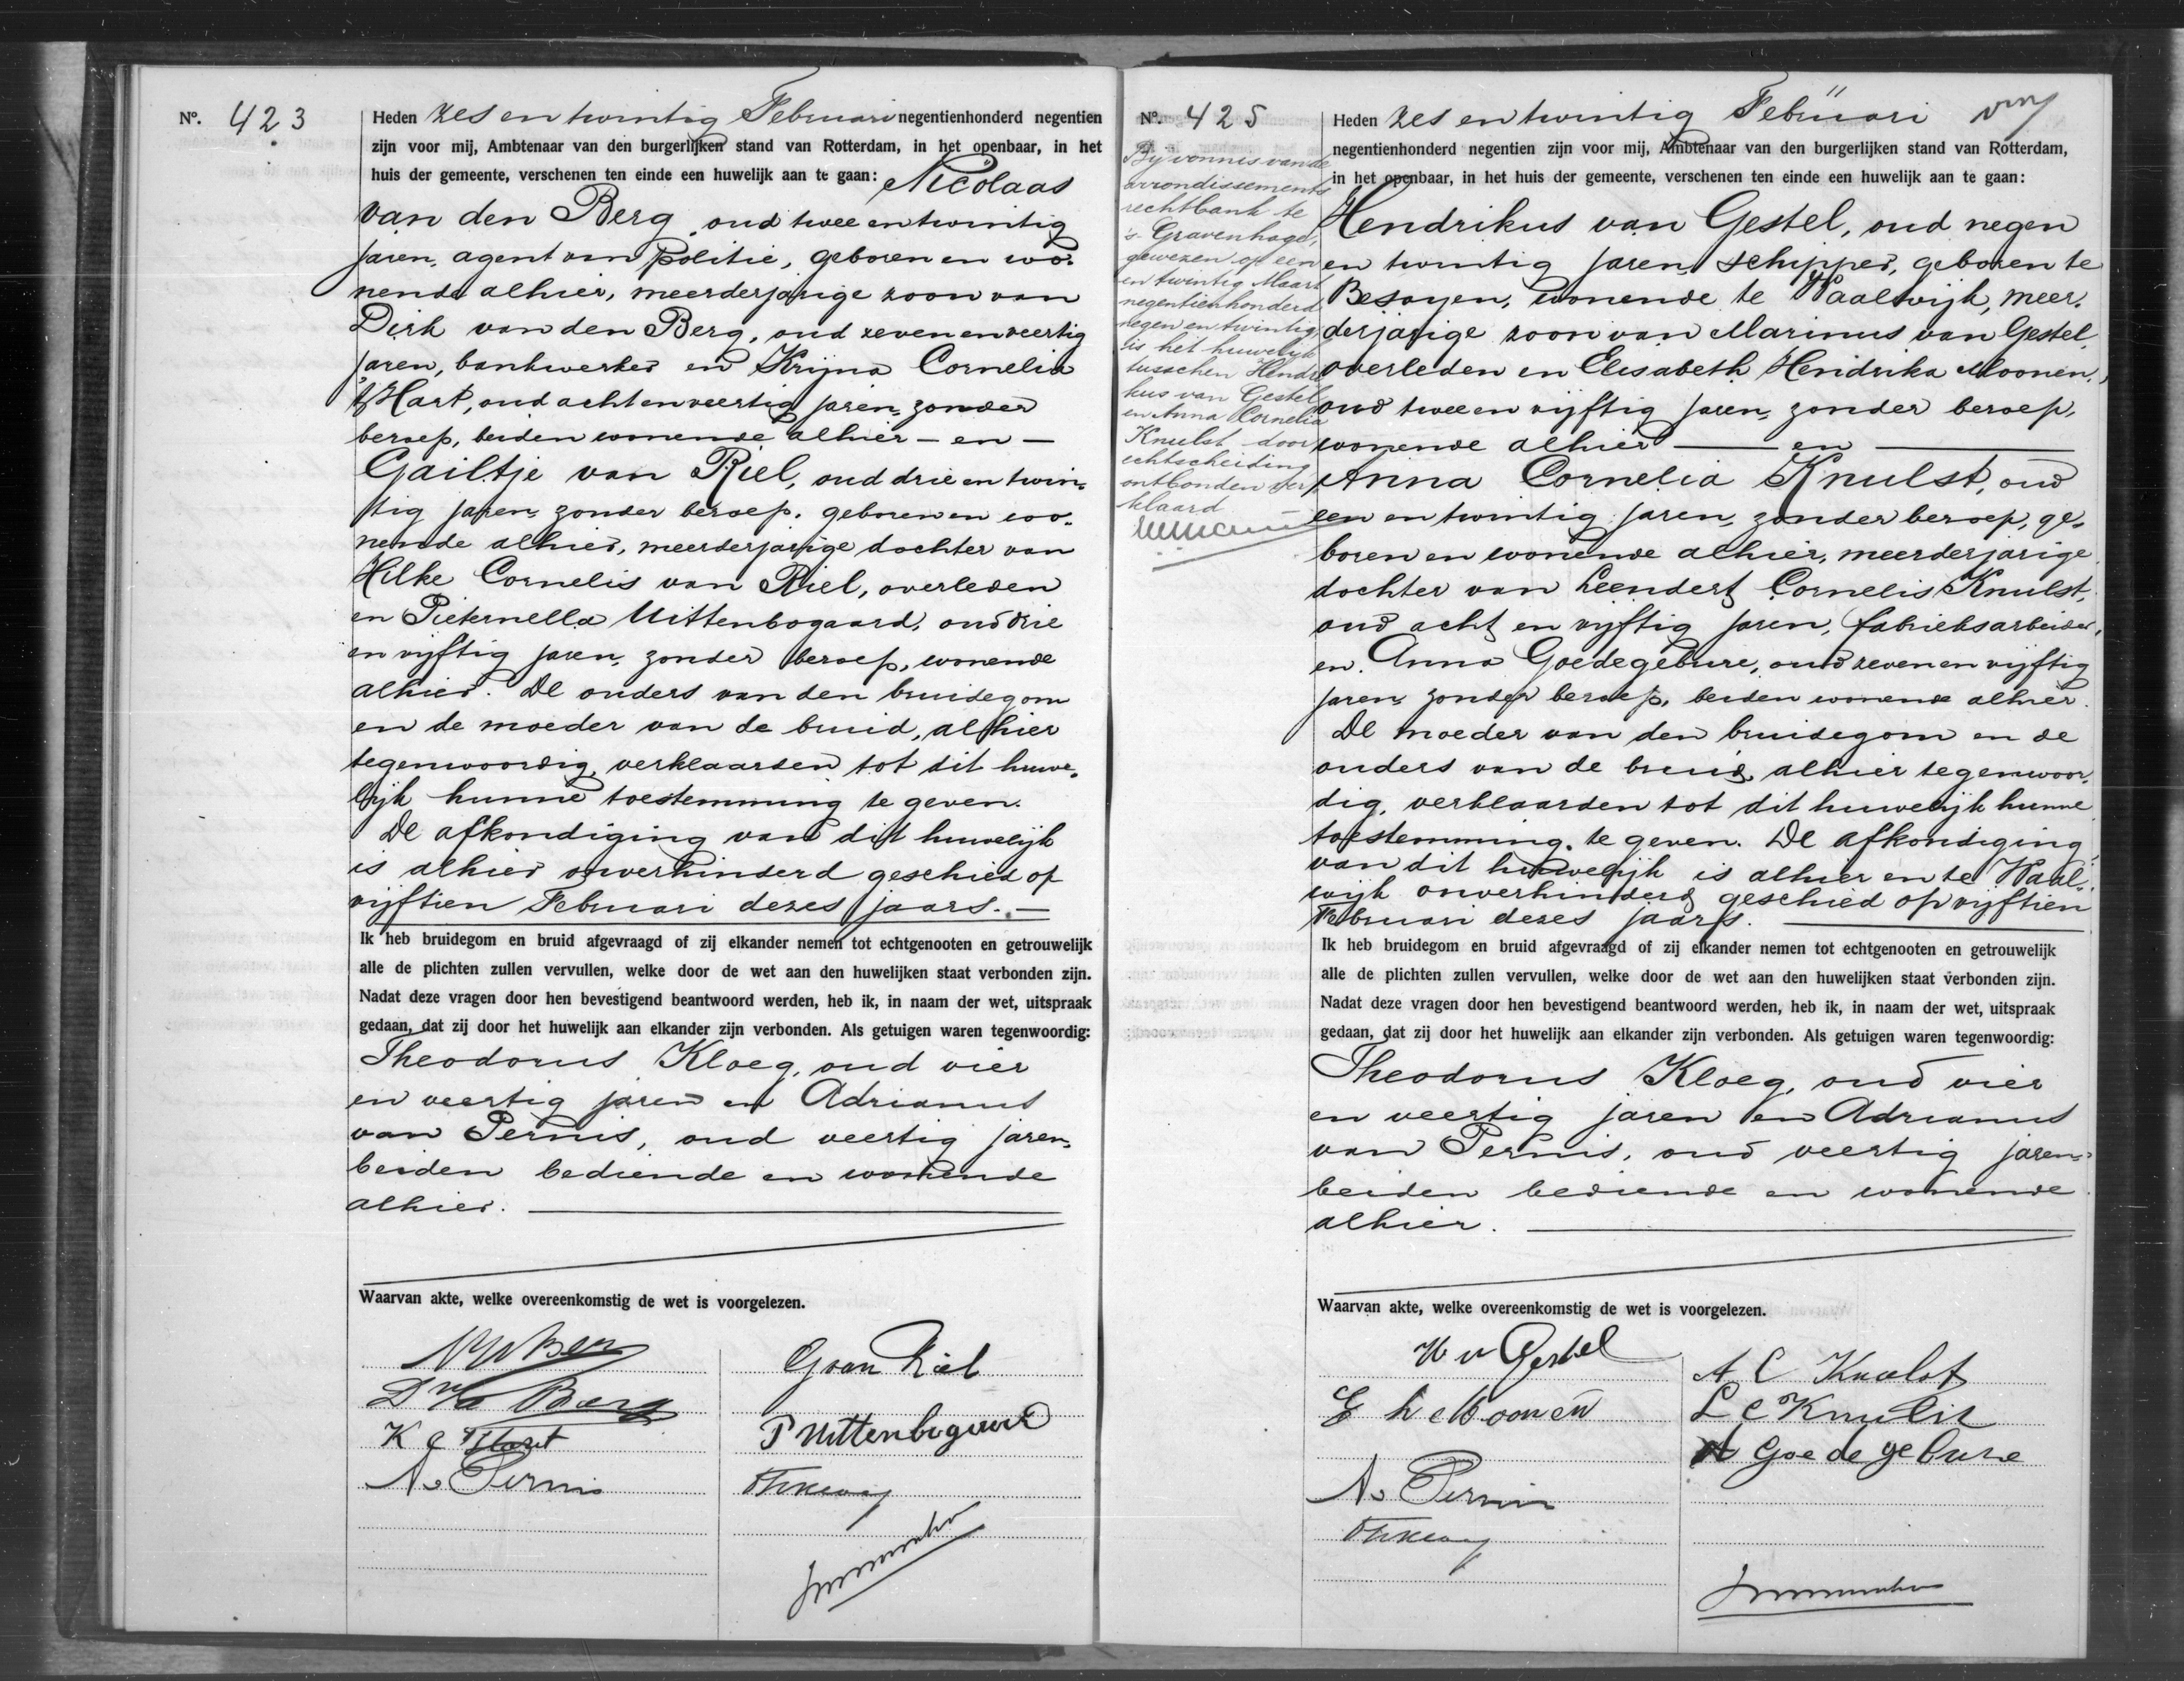 Nº. 423
Heden zes en twintig Februari negentienhonderd negentien
zijn voor mij, Ambtenaar van den burgerlijken stand van Rotterdam, in het openbaar, in het
huis der gemeente, verschenen ten einde een huwelijk aan te gaan: Nicolaas
van den Berg, oud twee en twintig
jaren, agent van politie, geboren en wo-
nende alhier, meerderjarige zoon van
Dirk van den Berg, oud zeven en veertig
jaren, bankwerker en Krijna Cornelia
't Hart, oud acht en veertig jaren, zonder
beroep, beiden wonende alhier - en -
Gailtje van Riel, oud drie en twin-
tig jaren, zonder beroep, geboren en wo-
nende alhier, meerderjarige dochter van
Hilke Cornelis van Riel, overleden
en Pieternella Uittenbogaard, oud drie
en vijftig jaren, zonder beroep, wonende
alhier. De ouders van den bruidegom
en de moeder van de bruid, alhier
tegenwoordig, verklaarden tot dit huwe-
lijk hunne toestemming te geven.
De afkondiging van dit huwelijk
is alhier onverhinderd geschied op
vijftien Februari dezes jaars. -
Ik heb bruidegom en bruid afgevraagd of zij elkander nemen tot echtgenooten en getrouwelijk
alle de plichten zullen vervullen, welke door de wet aan den huwelijken staat verbonden zijn.
Nadat deze vragen door hen bevestigend beantwoord werden, heb ik, in naam der wet, uitspraak
gedaan, dat zij door het huwelijk aan elkander zijn verbonden. Als getuigen waren tegenwoordig:
Theodorus Kloeg, oud vier
en veertig jaren en Adrianus
van Pernis, oud veertig jaren,
beiden bediende en wonende
alhier.
Waarvan akte, welke overeenkomstig de wet is voorgelezen.
G van Riel
D vd Berg
K C 't Hart
P Uittenbogaard
A v Pernis
Nº. 425
Bij vonnis van de
arrondissements
rechtbank te
's-Gravenhage,
gewezen op een
en twintig Maart
negentienhonderd
negen en twintig,
is het huwelijk
tusschen Hendri
kus van Gestel
en Anna Cornelia
Knulst door
echtscheiding
ontbonden ver
klaard
Heden zes en twintig Februari
negentienhonderd negentien zijn voor mij, Ambtenaar van den burgerlijken stand van Rotterdam,
in het openbaar, in het huis der gemeente, verschenen ten einde een huwelijk aan te gaan:
Hendrikus van Gestel, oud negen
en twintig jaren, schipper, geboren te
Besoyen, wonende te Waalwijk, meer-
derjarige zoon van Marinus van Gestel,
overleden en Elisabeth Hendrika Moonen,
oud twee en vijftig jaren, zonder beroep,
wonende alhier - en -
Anna Cornelia Knulst, oud
een en twintig jaren, zonder beroep, ge-
boren en wonende alhier, meerderjarige
dochter van Leendert Cornelis Knulst,
oud acht en vijftig jaren, fabrieksarbeider,
en Anna Goedegebure, oud zeven en vijftig
jaren, zonder beroep, beiden wonende alhier.
De moeder van den bruidegom en de
ouders van de bruid, alhier tegenwoor-
dig, verklaarden tot dit huwelijk hunne
toestemming te geven. De afkondiging
van dit huwelijk is alhier en te Waal-
wijk onverhinderd geschied op vijftien
Februari dezes jaars.
Ik heb bruidegom en bruid afgevraagd of zij elkander nemen tot echtgenooten en getrouwelijk
alle de plichten zullen vervullen, welke door de wet aan den huwelijken staat verbonden zijn.
Nadat deze vragen door hen bevestigend beantwoord werden, heb ik, in naam der wet, uitspraak
gedaan, dat zij door het huwelijk aan elkander zijn verbonden. Als getuigen waren tegenwoordig:
Theodorus Kloeg, oud vier
en veertig jaren en Adrianus
van Pernis, oud veertig jaren,
beiden bediende en wonende
alhier.
Waarvan akte, welke overeenkomstig de wet is voorgelezen.
H v Gestel
A C Knulst
E h Moonen
L C Knulst
A Goedegebure
A v Pernis